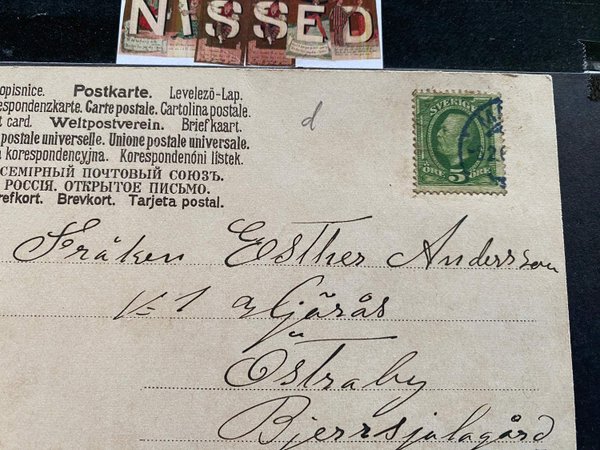 NISSED
opisnice. Postkarte. Levelező-Lap.
respondenzkarte. Carte postale. Cartolina postale.
t card. Weltpostverein. Briefkaart.
postale universelle. Unione postale universale.
a korespondencyjna. Korespondenóni listek.
СЕМІРНЫЙ ПОЧТОВЫЙ СОЮЗЪ.
РОССІЯ. ОТКРЫТОЕ ПИСЬМО.
refkort. Brevkort. Tarjeta postal.
d
SVERIGE
5
ÖRE ÖRE
Fröken Esther Andersson
Östraby
Bjerrsjölagård